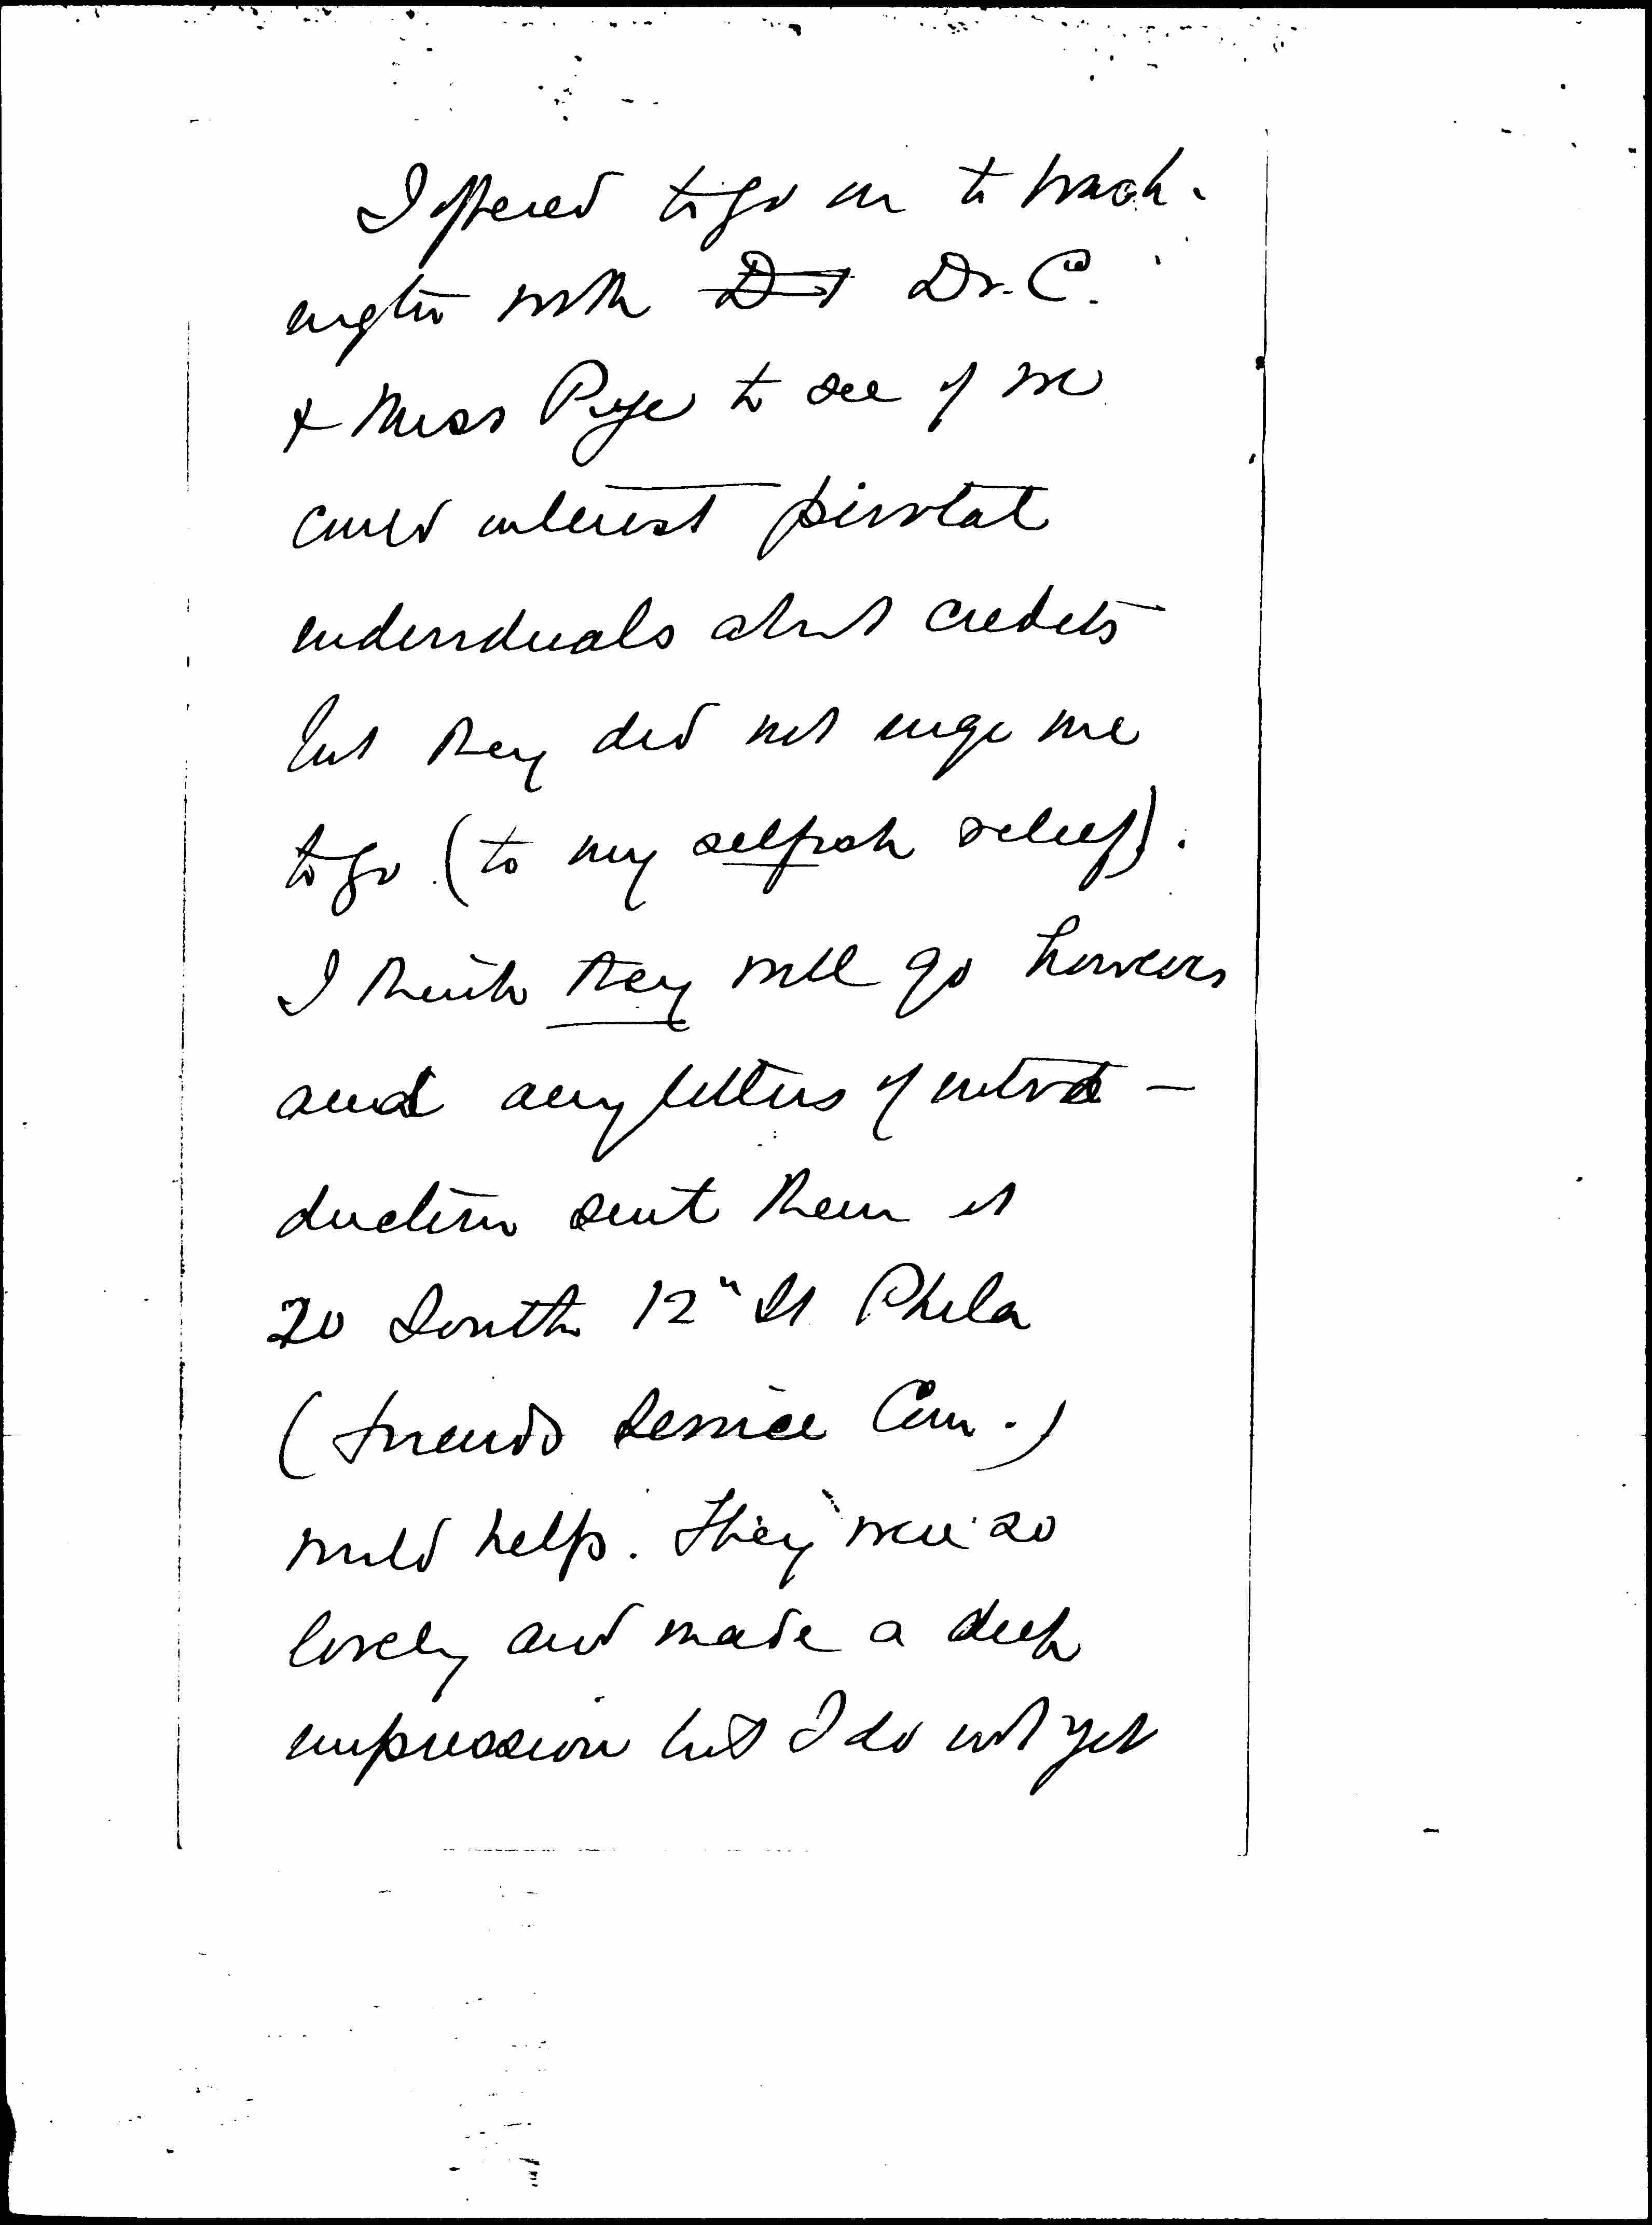 I offered to go on to Wash-
ington with Dr. C.
& Miss Pye to see if we
could interest pivotal
individuals about credits
but they did not urge me
to go (to my selfish relief).
I think they will go however
and any letters of intro-
duction sent them at
20 South 12" St Phila
(Friends Service Com.)
would help. They were so
lovely and made a deep
impression but I do not yet